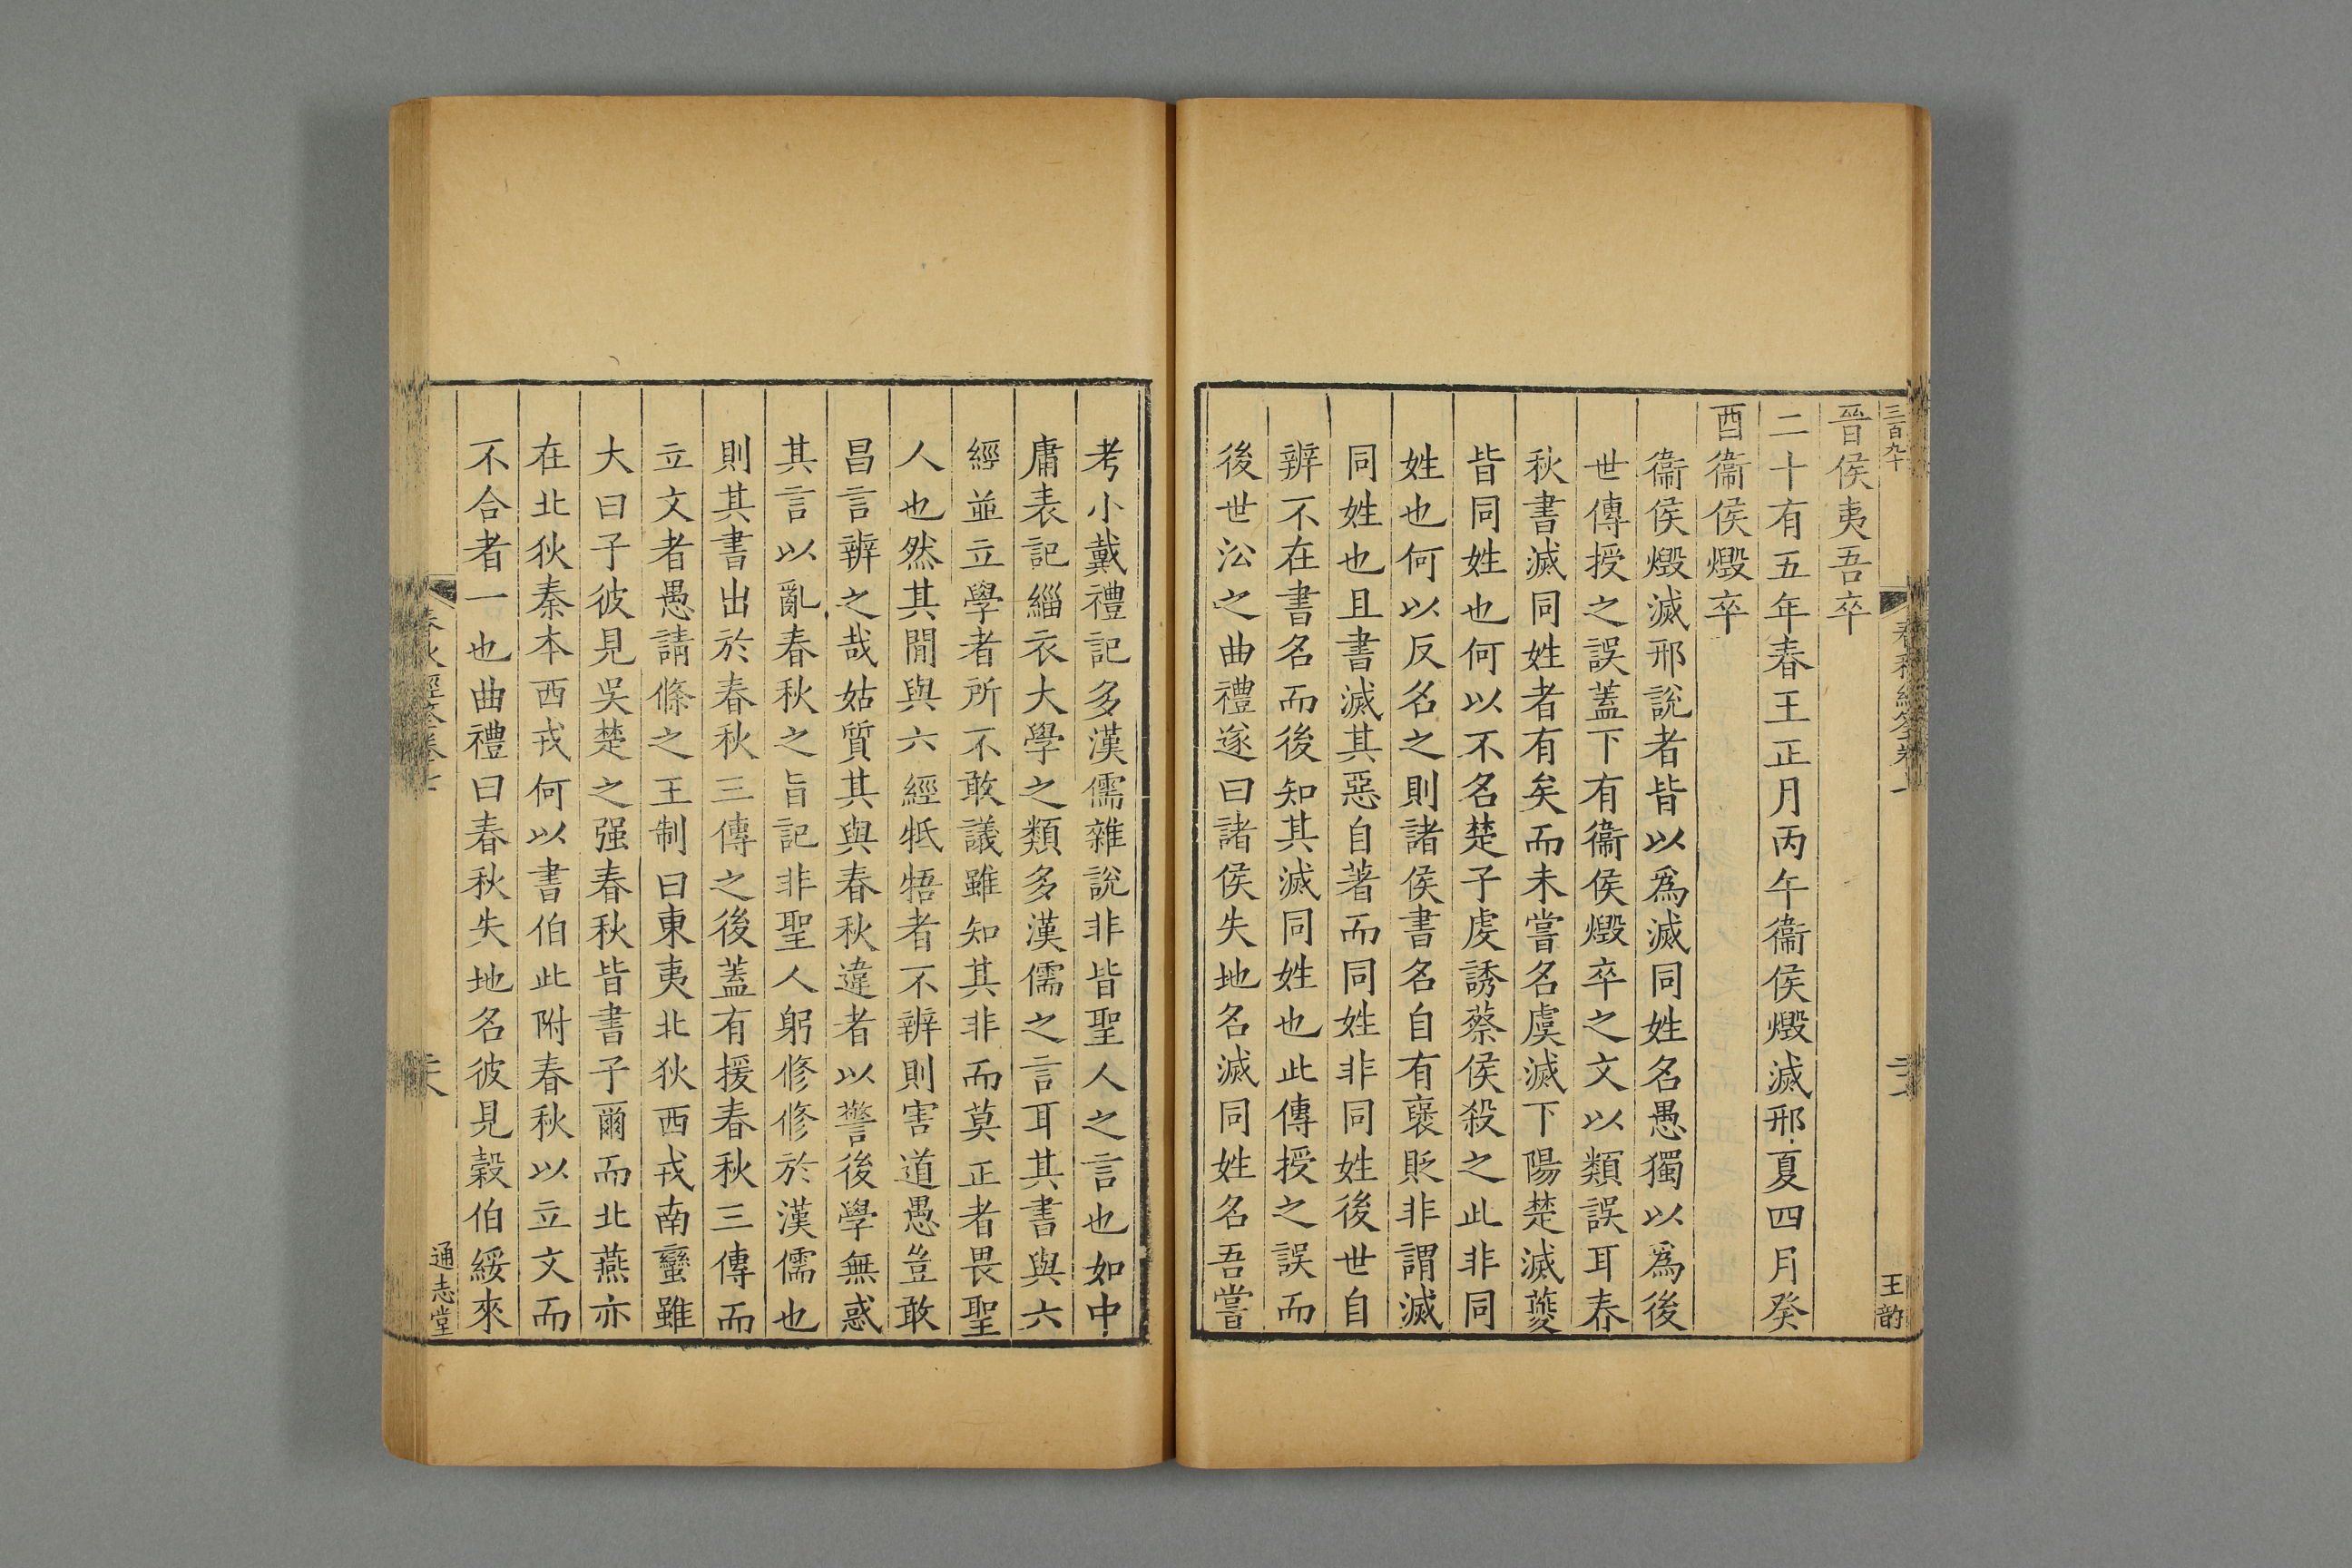 三百九十
王韵
晉侯夷吾卒
二十有五年春王正月丙午衞侯燬滅邢夏四月癸
酉衞侯燬卒
衞侯燬滅邢說者皆以爲滅同姓名愚獨以爲後
世傳授之誤蓋下有衞侯燬卒之文以類誤耳春
秋書滅同姓者有矣而未嘗名虞滅下陽楚滅夔
皆同姓也何以不名楚子虔誘蔡侯殺之此非同
姓也何以反名之則諸侯書名自有褒貶非謂滅
同姓也且書滅其惡自著而同姓非同姓後世自
辨不在書名而後知其滅同姓也此傳授之誤而
後世㳂之曲禮遂曰諸侯失地名滅同姓名吾嘗
考小戴禮記多漢儒雜說非皆聖人之言也如中
庸表記緇衣大學之類多漢儒之言耳其書與六
經並立學者所不敢議雖知其非而莫正者畏聖
人也然其閒與六經牴牾者不辨則害道愚豈敢
昌言辨之哉姑質其與春秋違者以警後學無惑
其言以亂春秋之旨記非聖人躬修修於漢儒也
則其書出於春秋三傳之後蓋有援春秋三傳而
立文者愚請條之王制曰東夷北狄西戎南蠻雖
大曰子彼見吳楚之强春秋皆書子爾而北燕亦
在北狄秦本西戎何以書伯此附春秋以立文而
不合者一也曲禮曰春秋失地名彼見穀伯綏來
通志堂